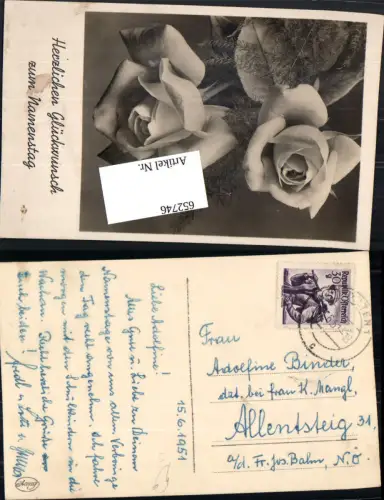 Herzlichen Glückwunsch
zum Namenstag
Artikel Nr.
652746
15.6.1951
Liebe Adolfine!
Alles Gute u. Liebe zu Deinem
Namenstage von uns allen. Verbringe
den Tag recht angenehm. Ich fahre
morgen mit den Schulkindern in die
Wachau. Recht herzliche Grüße an
Euch beiden!
Frau
Adolfine Binder,
dzt. bei frau K. Mangl,
Allentsteig 31,
a/d. Fr. Jos. Bahn, N.Ö.
30